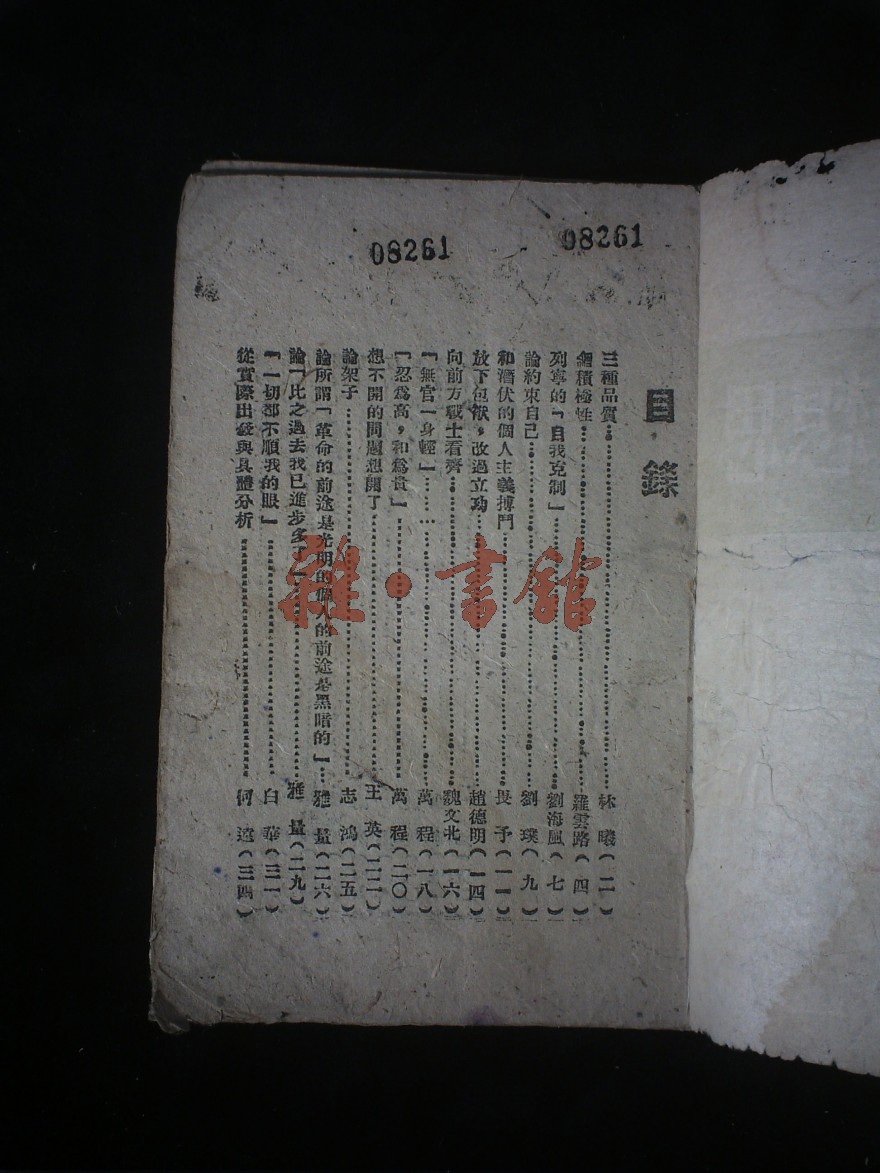 08261
08261
目錄
三種品質……林曦（二）
論積極性……羅雲路（四）
列寧的「自我克制」……劉海風（七）
論約束自己……劉璞（九）
和潛伏的個人主義搏鬥……畏予（一一）
放下包袱，改過立功……趙德明（一四）
向前方戰士看齊……魏文北（一六）
「無官一身輕」……萬程（一八）
「忍為高，和為貴」……萬程（二〇）
想不開的問題想開了……王英（二二）
論架子……志鴻（二五）
論所謂「革命的前途是光明的個人的前途是黑暗的」……雅量（二六）
論「比之過去我已進步多了」……雅量（二九）
「一切都不順我的眼」……白華（三一）
從實際出發與具體分析……何遠（三四）
雜·書館